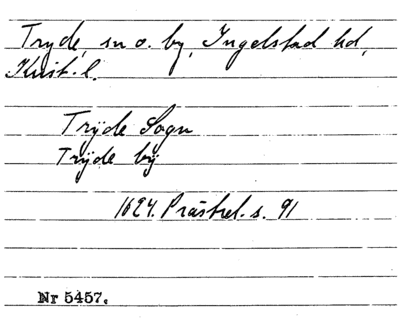 Tryde, sn o. by, Ingelstad hd,
Krist. l.
Trÿde Sogn
Trÿde bÿ
1624. Prästrel. s. 91
Nr 5457.